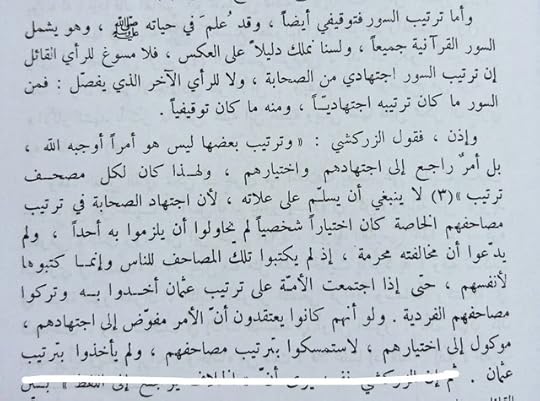 وأما ترتيب السور فتوقيفي أيضاً ، وقد ُعلم َ في حياته ﷺ ، وهو يشمل
السور القرآنية جميعاً ، ولسنا نملك دليلا ً على العكس ، فلا مسوغ للرأي القائل
إن ترتيب السور اجتهادي من الصحابة ، ولا للرأي الآخر الذي يفصّل : فمن
السور ما كان ترتيبه اجتهاديّاً ، ومنه ما كان توقيفياً .
وإذن ، فقول الزركشي : «وترتيب بعضها ليس هو أمراً أوجبه الله ،
بل أمرٌ راجع إلى اجتهادهم واختيارهم ، ولهذا كان لكل مصحف
ترتيب »(٣) لا ينبغي أن يسلّم على علاته ، لأن اجتهاد الصحابة في ترتيب
مصاحفهم الخاصة كان اختياراً شخصياً لم يحاولوا أن يلزموا به أحداً ، ولم
يدّعوا أن مخالفته محرمة ، إذ لم يكتبوا تلك المصاحف للناس وإنما كتبوها
لأنفسهم ، حتى إذا اجتمعت الأمّة على ترتيب عثمان أخذوا به وتركوا
مصاحفهم الفردية . ولو أنهم كانوا يعتقدون أنّ الأمر مفوّض إلى اجتهادهم ،
موكول إلى اختيارهم ، لاستمسكوا بترتيب مصاحفهم ، ولم يأخذوا بترتيب
عثمان . ثم إن الزركشي